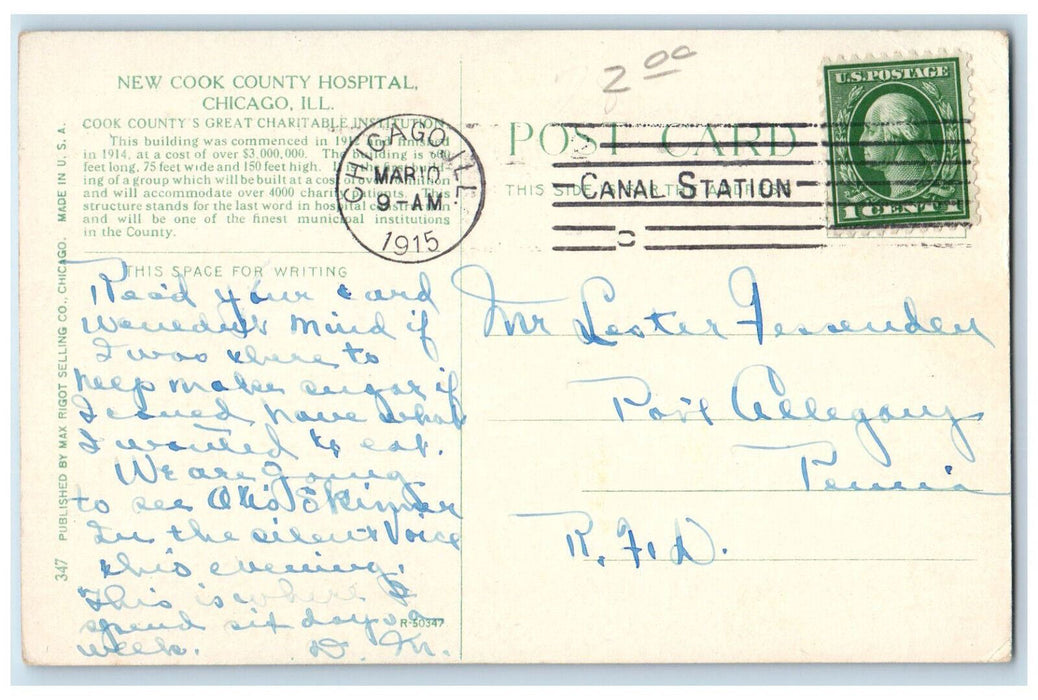 NEW COOK COUNTY HOSPITAL,
CHICAGO, ILL.
COOK COUNTY'S GREAT CHARITABLE INSTITUTION
This building was commenced in 1912 and finished
in 1914, at a cost of over $3,000,000. The building is
feet long, 75 feet wide and 150 feet high. It is the
ing of a group which will be built at a cost of over million
and will accommodate over 4000 charity patients. This
structure stands for the last word in hospital construction
and will be one of the finest municipal institutions
in the County.
THIS SPACE FOR WRITING
Read your card
mind if
I was there to
help make sugar if
I have what
I wanted to eat.
We are going
to see Otis Skinner
In the silent Voice
this evening.
This is where I
spend six days a
week. D. M.
R-50347
347 PUBLISHED BY MAX RIGOT SELLING CO., CHICAGO. MADE IN U. S. A.
2 00
POST CARD
THIS SIDE IS FOR THE ADDRESS
CHICAGO, ILL.
MAR 10
9-AM
1915
CANAL STATION
C
U.S. POSTAGE
1 CENT 1
Mr Lester Fessenden
Port Allegany
Penna
R. F. D.